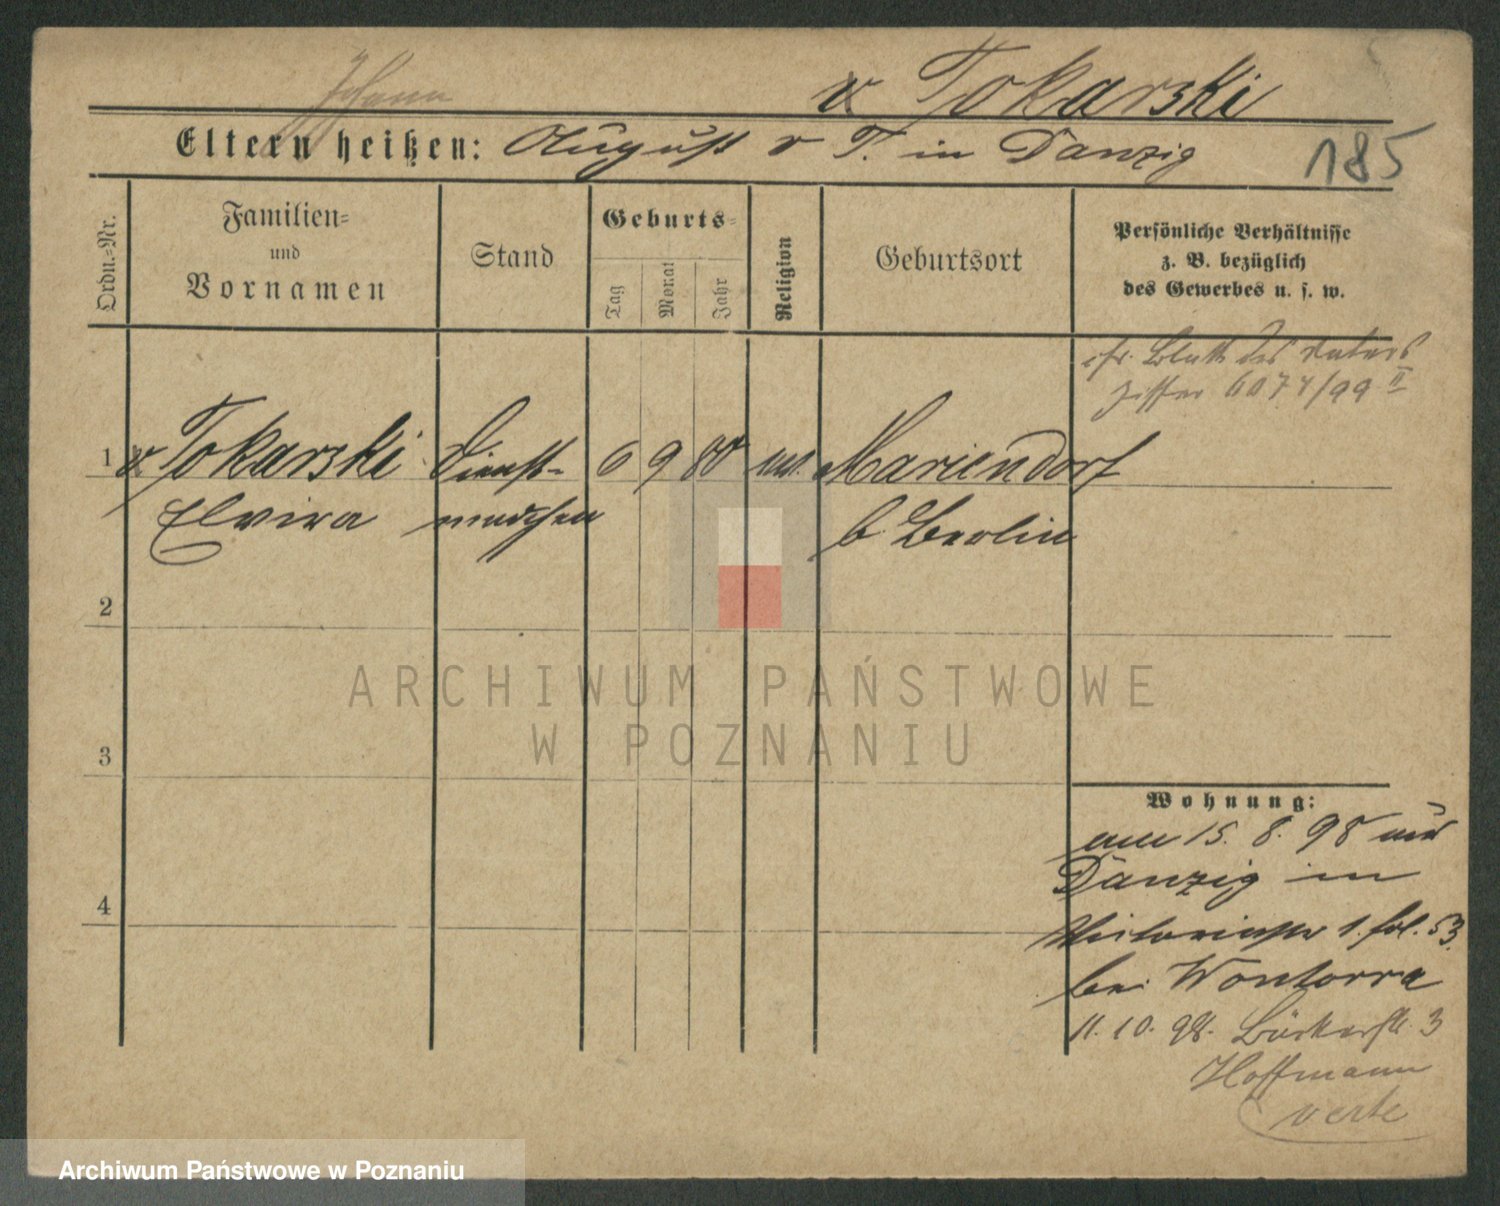 v Tokarski
Eltern heißen: August v T. in Danzig
185
Ordn.-Nr.
Familien-
und
Vornamen
Stand
Geburts-
Tag
Monat
Jahr
Religion
Geburtsort
Persönliche Verhältnisse
z. B. bezüglich
des Gewerbes u. s. w.
cfr. Blatt des Vaters
Ziffer 6074/99 II
1 v. Tokarski Dienst- 6 9 80 Mariendorf
Elvira mädchen b. Berlin
2
3
4
ARCHIWUM PAŃSTWOWE
W POZNANIU
Wohnung:
am 15. 8. 98 aus
Danzig in
Victoriastr 1. fol. 53.
bei Wontorra
11. 10. 98. Bäckerstr. 3
Hoffmann
verte
Archiwum Państwowe w Poznaniu